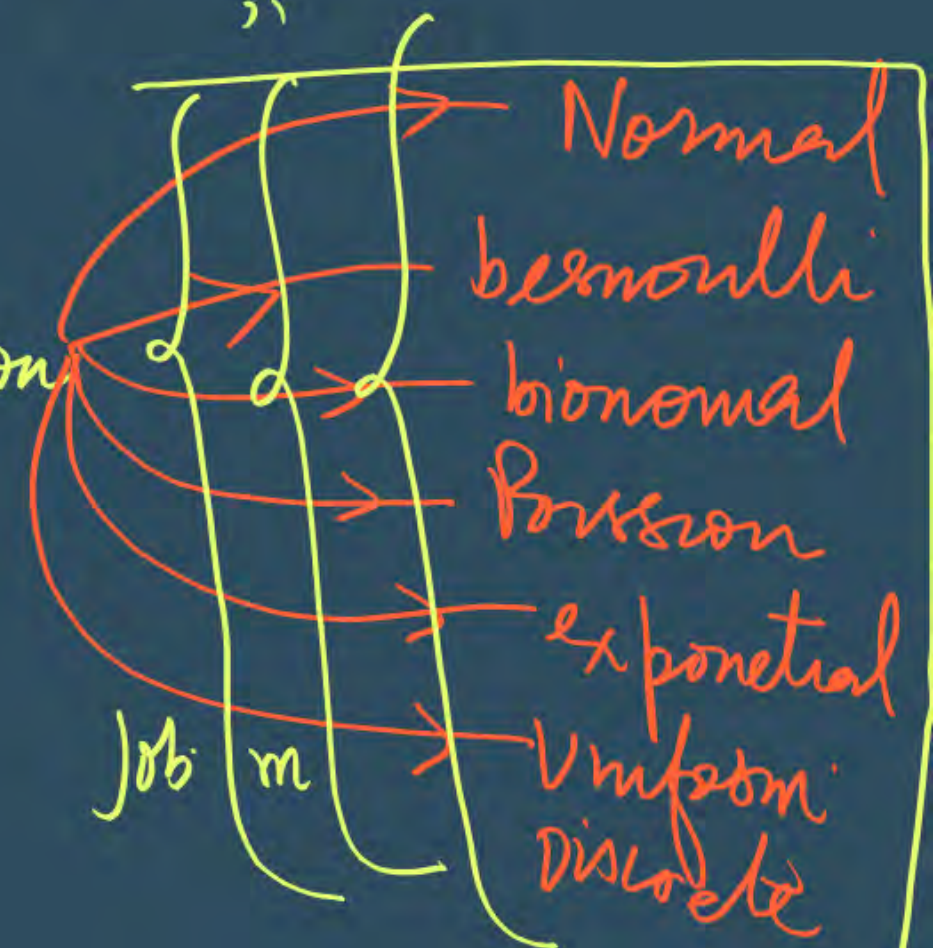 Normal
bernoulli
on
bionomal
Poission
exponetial
Job m
Uniform
Discrete